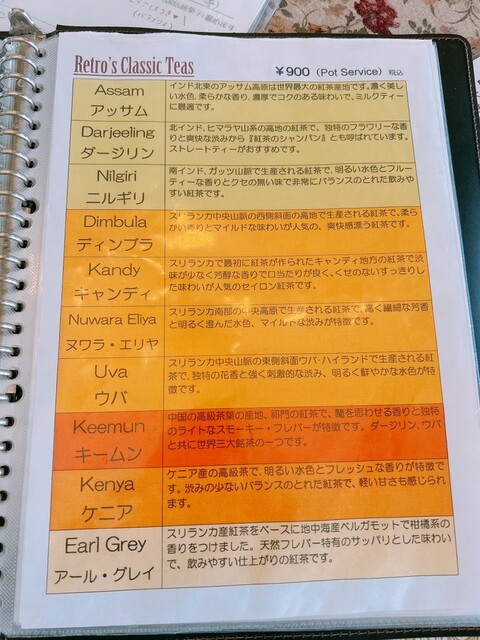 Retro's Classic Teas
￥900 (Pot Service) 税込
Assam
アッサム
インド北東のアッサム高原は世界最大の紅茶産地です。濃く美し
い水色、柔らかな香り、濃厚でコクのある味わいで、ミルクティー
に最適です。
Darjeeling
ダージリン
北インド、ヒマラヤ山系の高地の紅茶で、独特のフラワリーな香
りと爽快な渋みから『紅茶のシャンパン』とも呼ばれています。
ストレートティーがおすすめです。
Nilgiri
ニルギリ
南インド、ガッツ山脈で生産される紅茶で、明るい水色とフルー
ティーな香りとクセの無い味で非常にバランスのとれた飲みや
すい紅茶です。
Dimbula
ディンブラ
スリランカ中央山脈の西側斜面の高地で生産される紅茶で、柔ら
かい香りとマイルドな味わいが人気の、爽快感漂う紅茶です。
Kandy
キャンディ
スリランカで最初に紅茶が作られたキャンディ地方の紅茶で渋
味が少なく芳醇な香りで口当たりが良く、くせのないすっきりし
た味わいが人気のセイロン紅茶です。
Nuwara Eliya
ヌワラ・エリヤ
スリランカ南部の中央高原で生産される紅茶で、高く繊細な芳香
と明るく澄んだ水色、マイルドな渋みが特徴です。
Uva
ウバ
スリランカ中央山脈の東側斜面ウバ・ハイランドで生産される紅
茶で、独特の花香と強く刺激的な渋み、明るく鮮やかな水色が特
徴です。
Keemun
キームン
中国の高級茶葉の産地、祁門の紅茶で、蘭を思わせる香りと独特
のライトなスモーキー・フレバーが特徴です。ダージリン、ウバ
と共に世界三大銘茶の一つです。
Kenya
ケニア
ケニア産の高級茶で、明るい水色とフレッシュな香りが特徴で
す。渋みの少ないバランスのとれた紅茶で、軽い甘さも感じられ
ます。
Earl Grey
アール・グレイ
スリランカ産紅茶をベースに地中海産ベルガモットで柑橘系の
香りをつけました。天然フレバー特有のサッパリとした味わい
で、飲みやすい仕上がりの紅茶です。